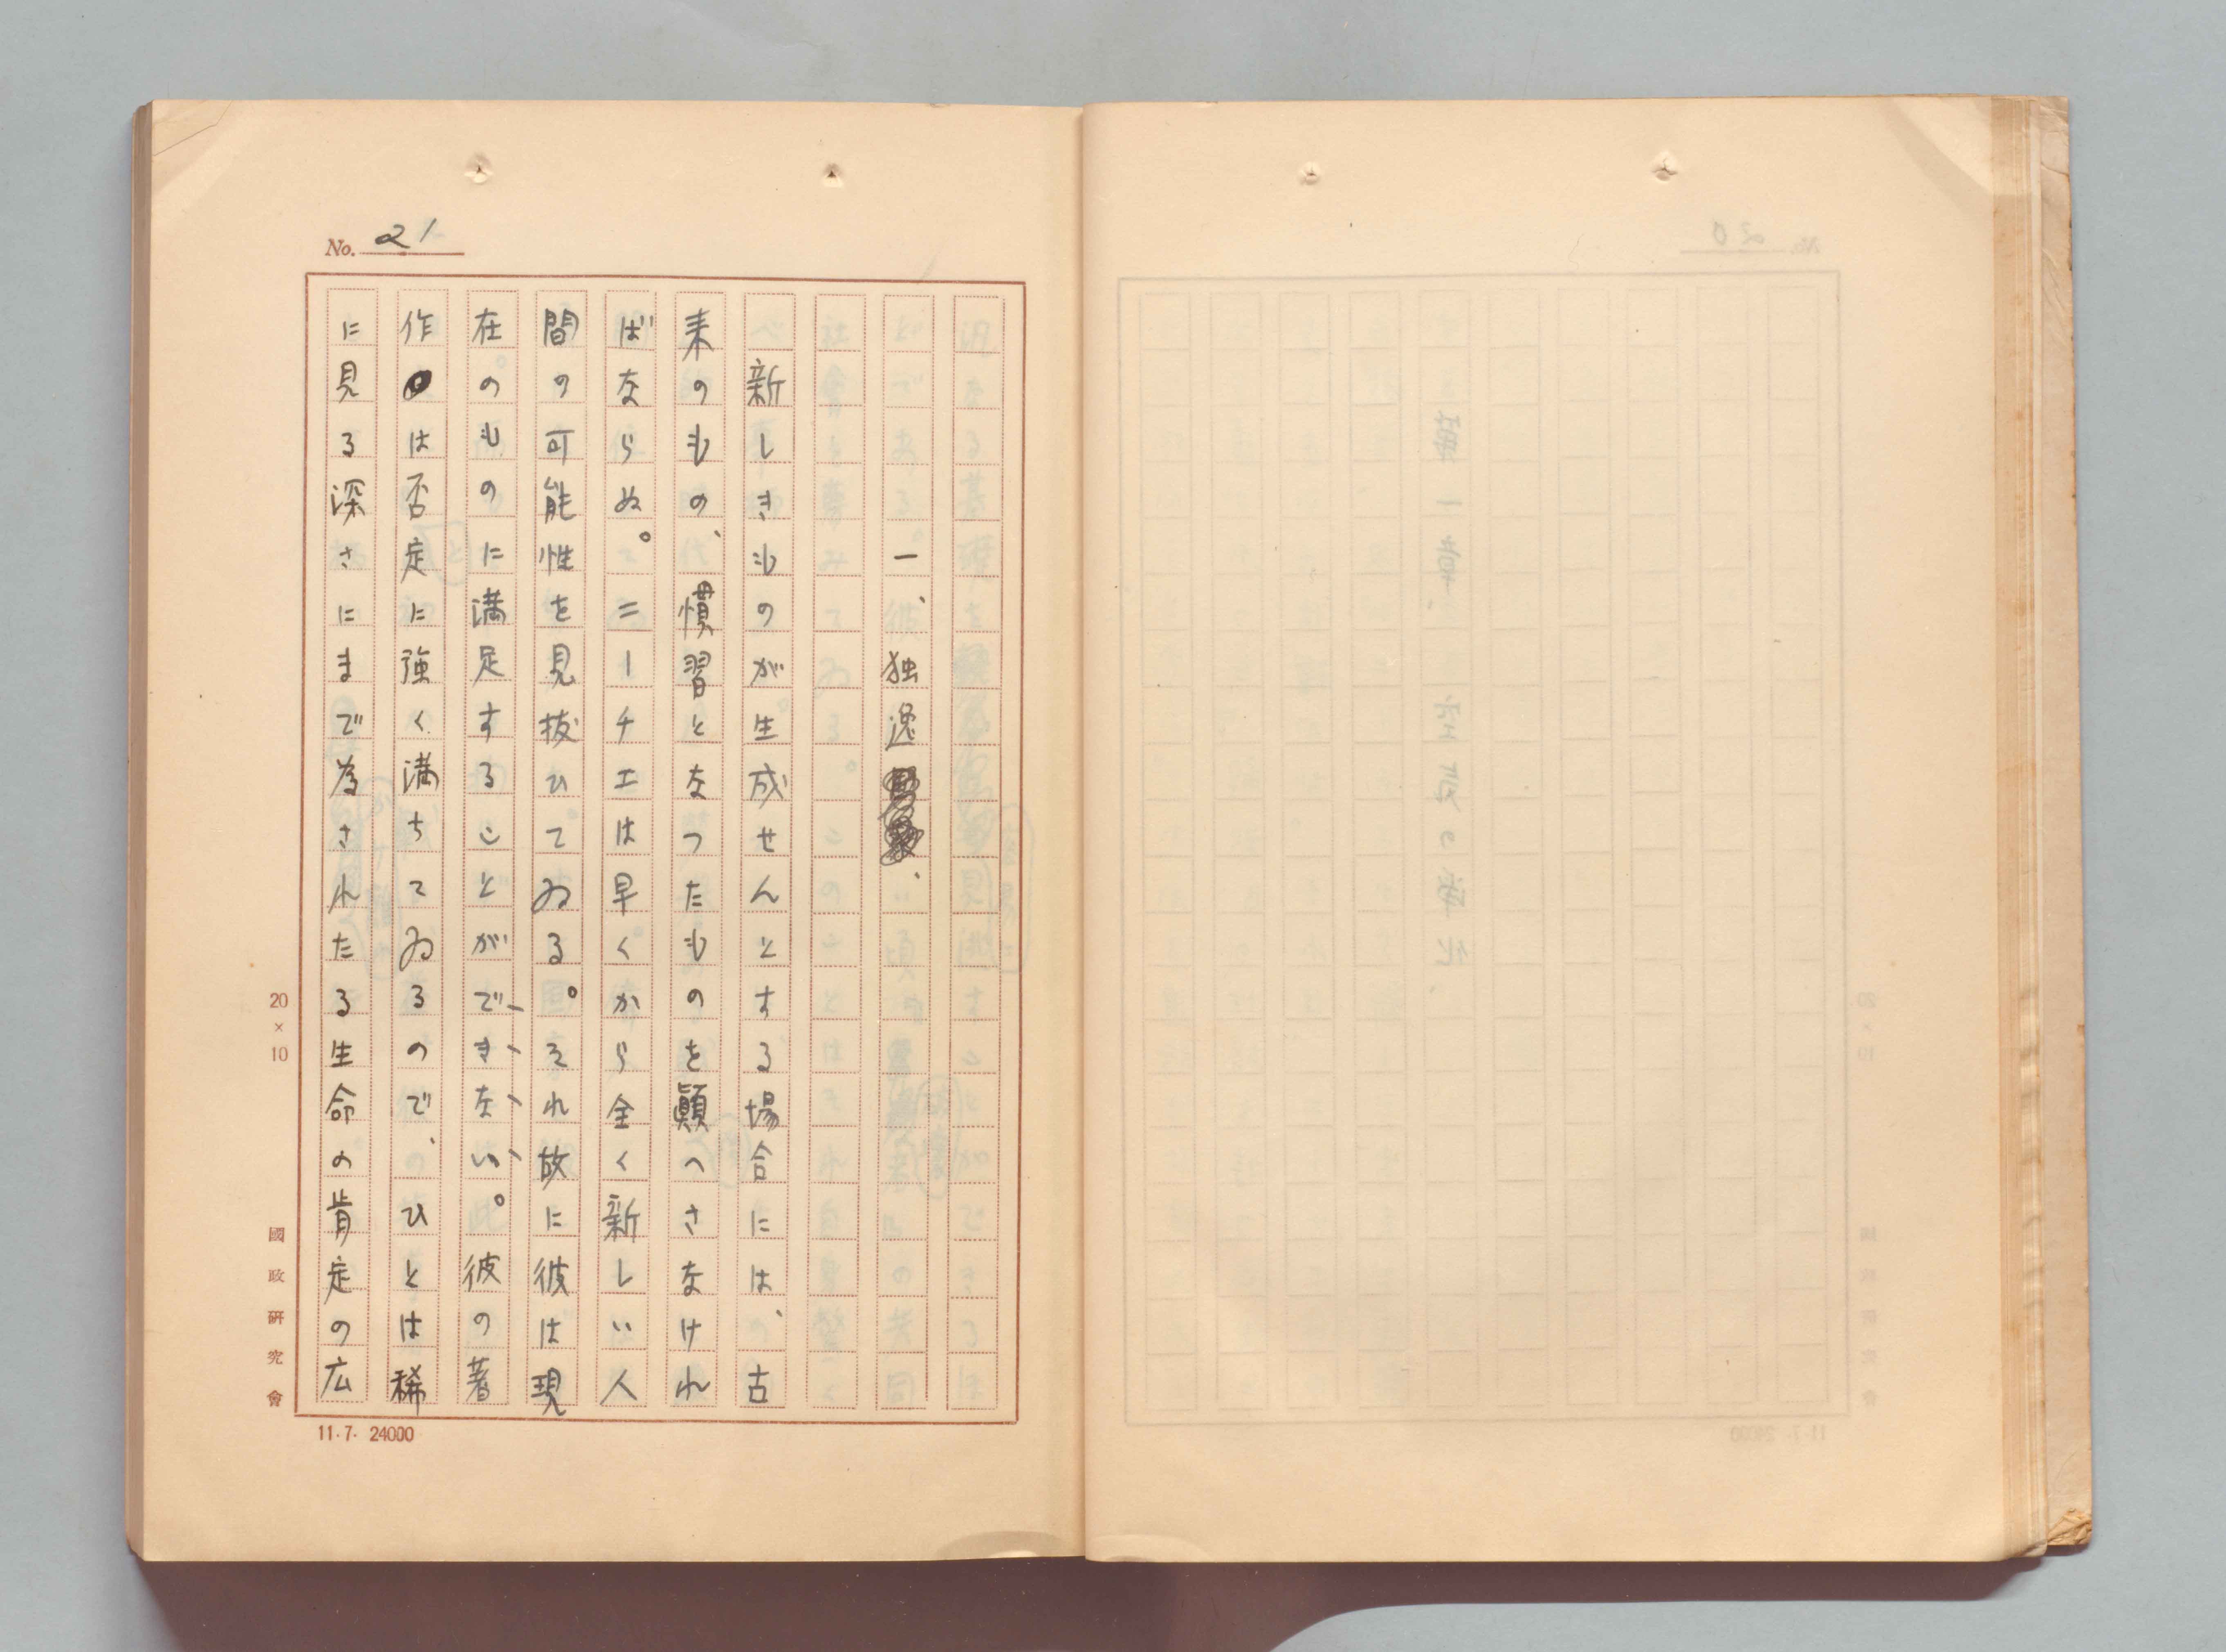 No. 21
一、独逸、
新しきものが生成せんとする場合には、古
来のもの、慣習となつたものを顚へさなけれ
ばならぬ。ニーチエは早くから全く新しい人
間の可能性を見抜ひてゐる。それ放に彼は現
在のものに満足することができない。彼の著
作は否定に強く満ちてゐるので、ひとは稀
に見る深さにまで為されたる生命の肯定の広
20×10
國政研究會
11.7. 24000